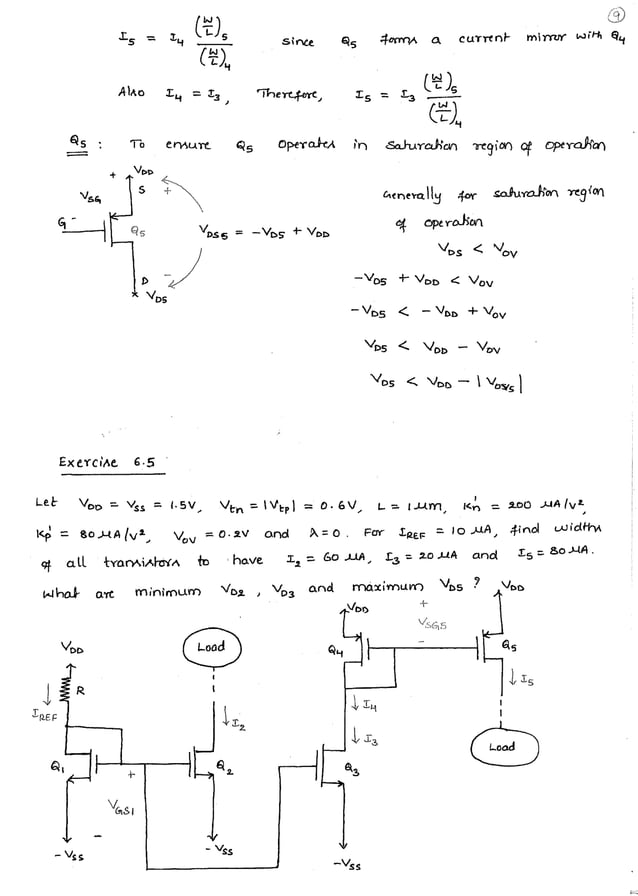 9
I5 = I4 (W/L)5 / (W/L)4 since Q5 forms a current mirror with Q4
Also I4 = I3, Therefore, I5 = I3 (W/L)5 / (W/L)4
Q5 : To ensure Q5 operates in saturation region of operation
VDD
+
S
+
VSG
G -
Q5
VDS5 = -VD5 + VDD
D
-
VD5
Generally for saturation region
of operation
VDS < VOV
-VD5 + VDD < VOV
-VD5 < -VDD + VOV
VD5 < VDD - VOV
VD5 < VDD - |VOV5|
Exercise 6.5
Let VDD = VSS = 1.5V, Vtn = |Vtp| = 0.6V, L = 1µm, Kn' = 200 µA/V²,
Kp' = 80µA/V², VOV = 0.2V and λ=0. For IREF = 10 µA, find widths
of all transistors to have I2 = 60 µA, I3 = 20µA and I5 = 80 µA.
What are minimum VD2, VD3 and maximum VD5 ?
VDD
VDD
+
VSG5
-
VDD
Load
Q4
Q5
R
IREF
I2
I4
I5
I3
Load
Q1
+
Q2
Q3
VGS1
-
-VSS
-VSS
-VSS